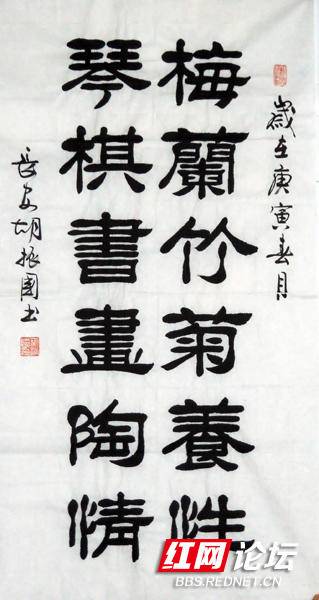 歲在庚寅春月
梅蘭竹菊養性
琴棋書畫陶情
長安胡振國书
红网论坛
BBS.REDNET.CN